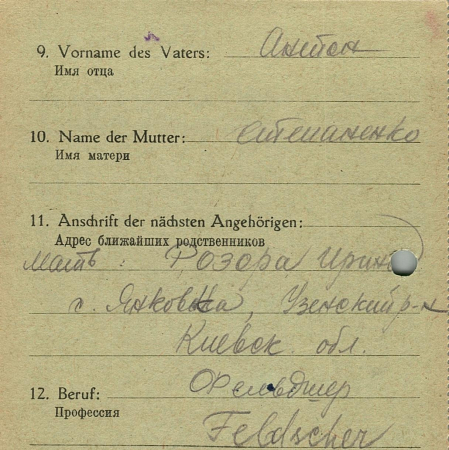 9. Vorname des Vaters: Антон
Имя отца
10. Name der Mutter: Степаненко
Имя матери
11. Anschrift der nächsten Angehörigen:
Адрес ближайших родственников
мать: Розора Ирина
с. Янковка, Узенский р-н
Киевск. обл.
12. Beruf: Фельдшер
Профессия
Feldscher